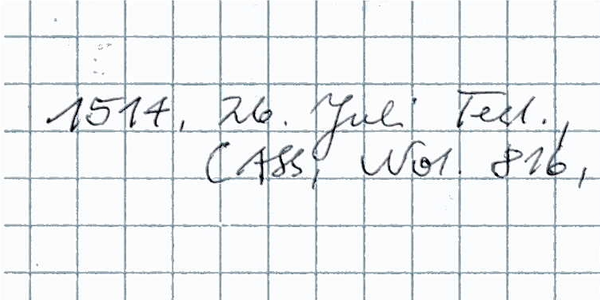 1514, 26. Juli Test.,
(ASS, Not. 816,